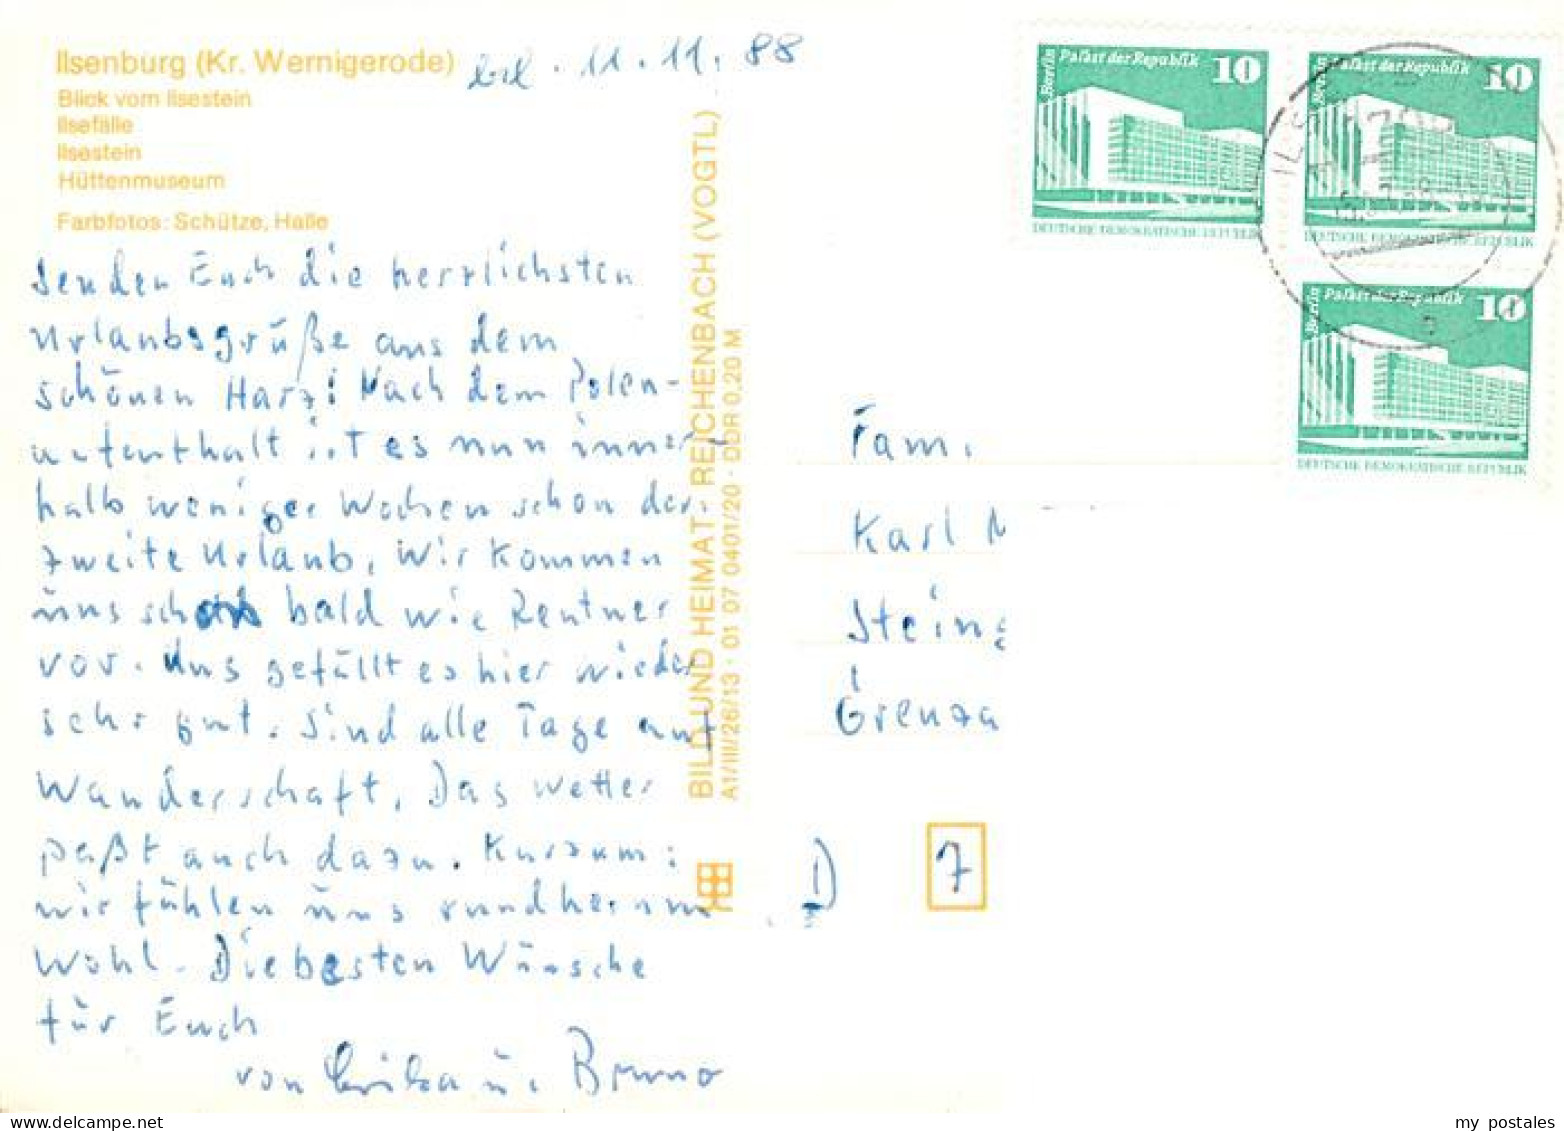 Ilsenburg (Kr. Wernigerode)
11.11.88
Blick vom Ilsestein
Ilsefälle
Ilsestein
Hüttenmuseum
Farbfotos: Schütze, Halle
Senden Euch die herzlichsten
Urlaubsgrüße aus dem
schönen Harz! Nach dem Polen-
aufenthalt ist es nun inner-
halb weniger Wochen schon der
zweite Urlaub. Wir kommen
uns schon bald wie Rentner
vor. Uns gefällt es hier wieder
sehr gut. Sind alle Tage auf
Wanderschaft. Das Wetter
paßt auch dazu. Kurzum:
wir fühlen uns rundherum
wohl. Die besten Wünsche
für Euch
von Erika u. Bruno
BILD UND HEIMAT REICHENBACH (VOGTL)
A1/III/26/13 · 01 07 0401/20 · DDR 0,20 M
Berlin Palast der Republik 10
DEUTSCHE DEMOKRATISCHE REPUBLIK
Berlin Palast der Republik 10
DEUTSCHE DEMOKRATISCHE REPUBLIK
Berlin Palast der Republik 10
DEUTSCHE DEMOKRATISCHE REPUBLIK
Fam.
Karl
Stein
Grenza
D 7
my postales